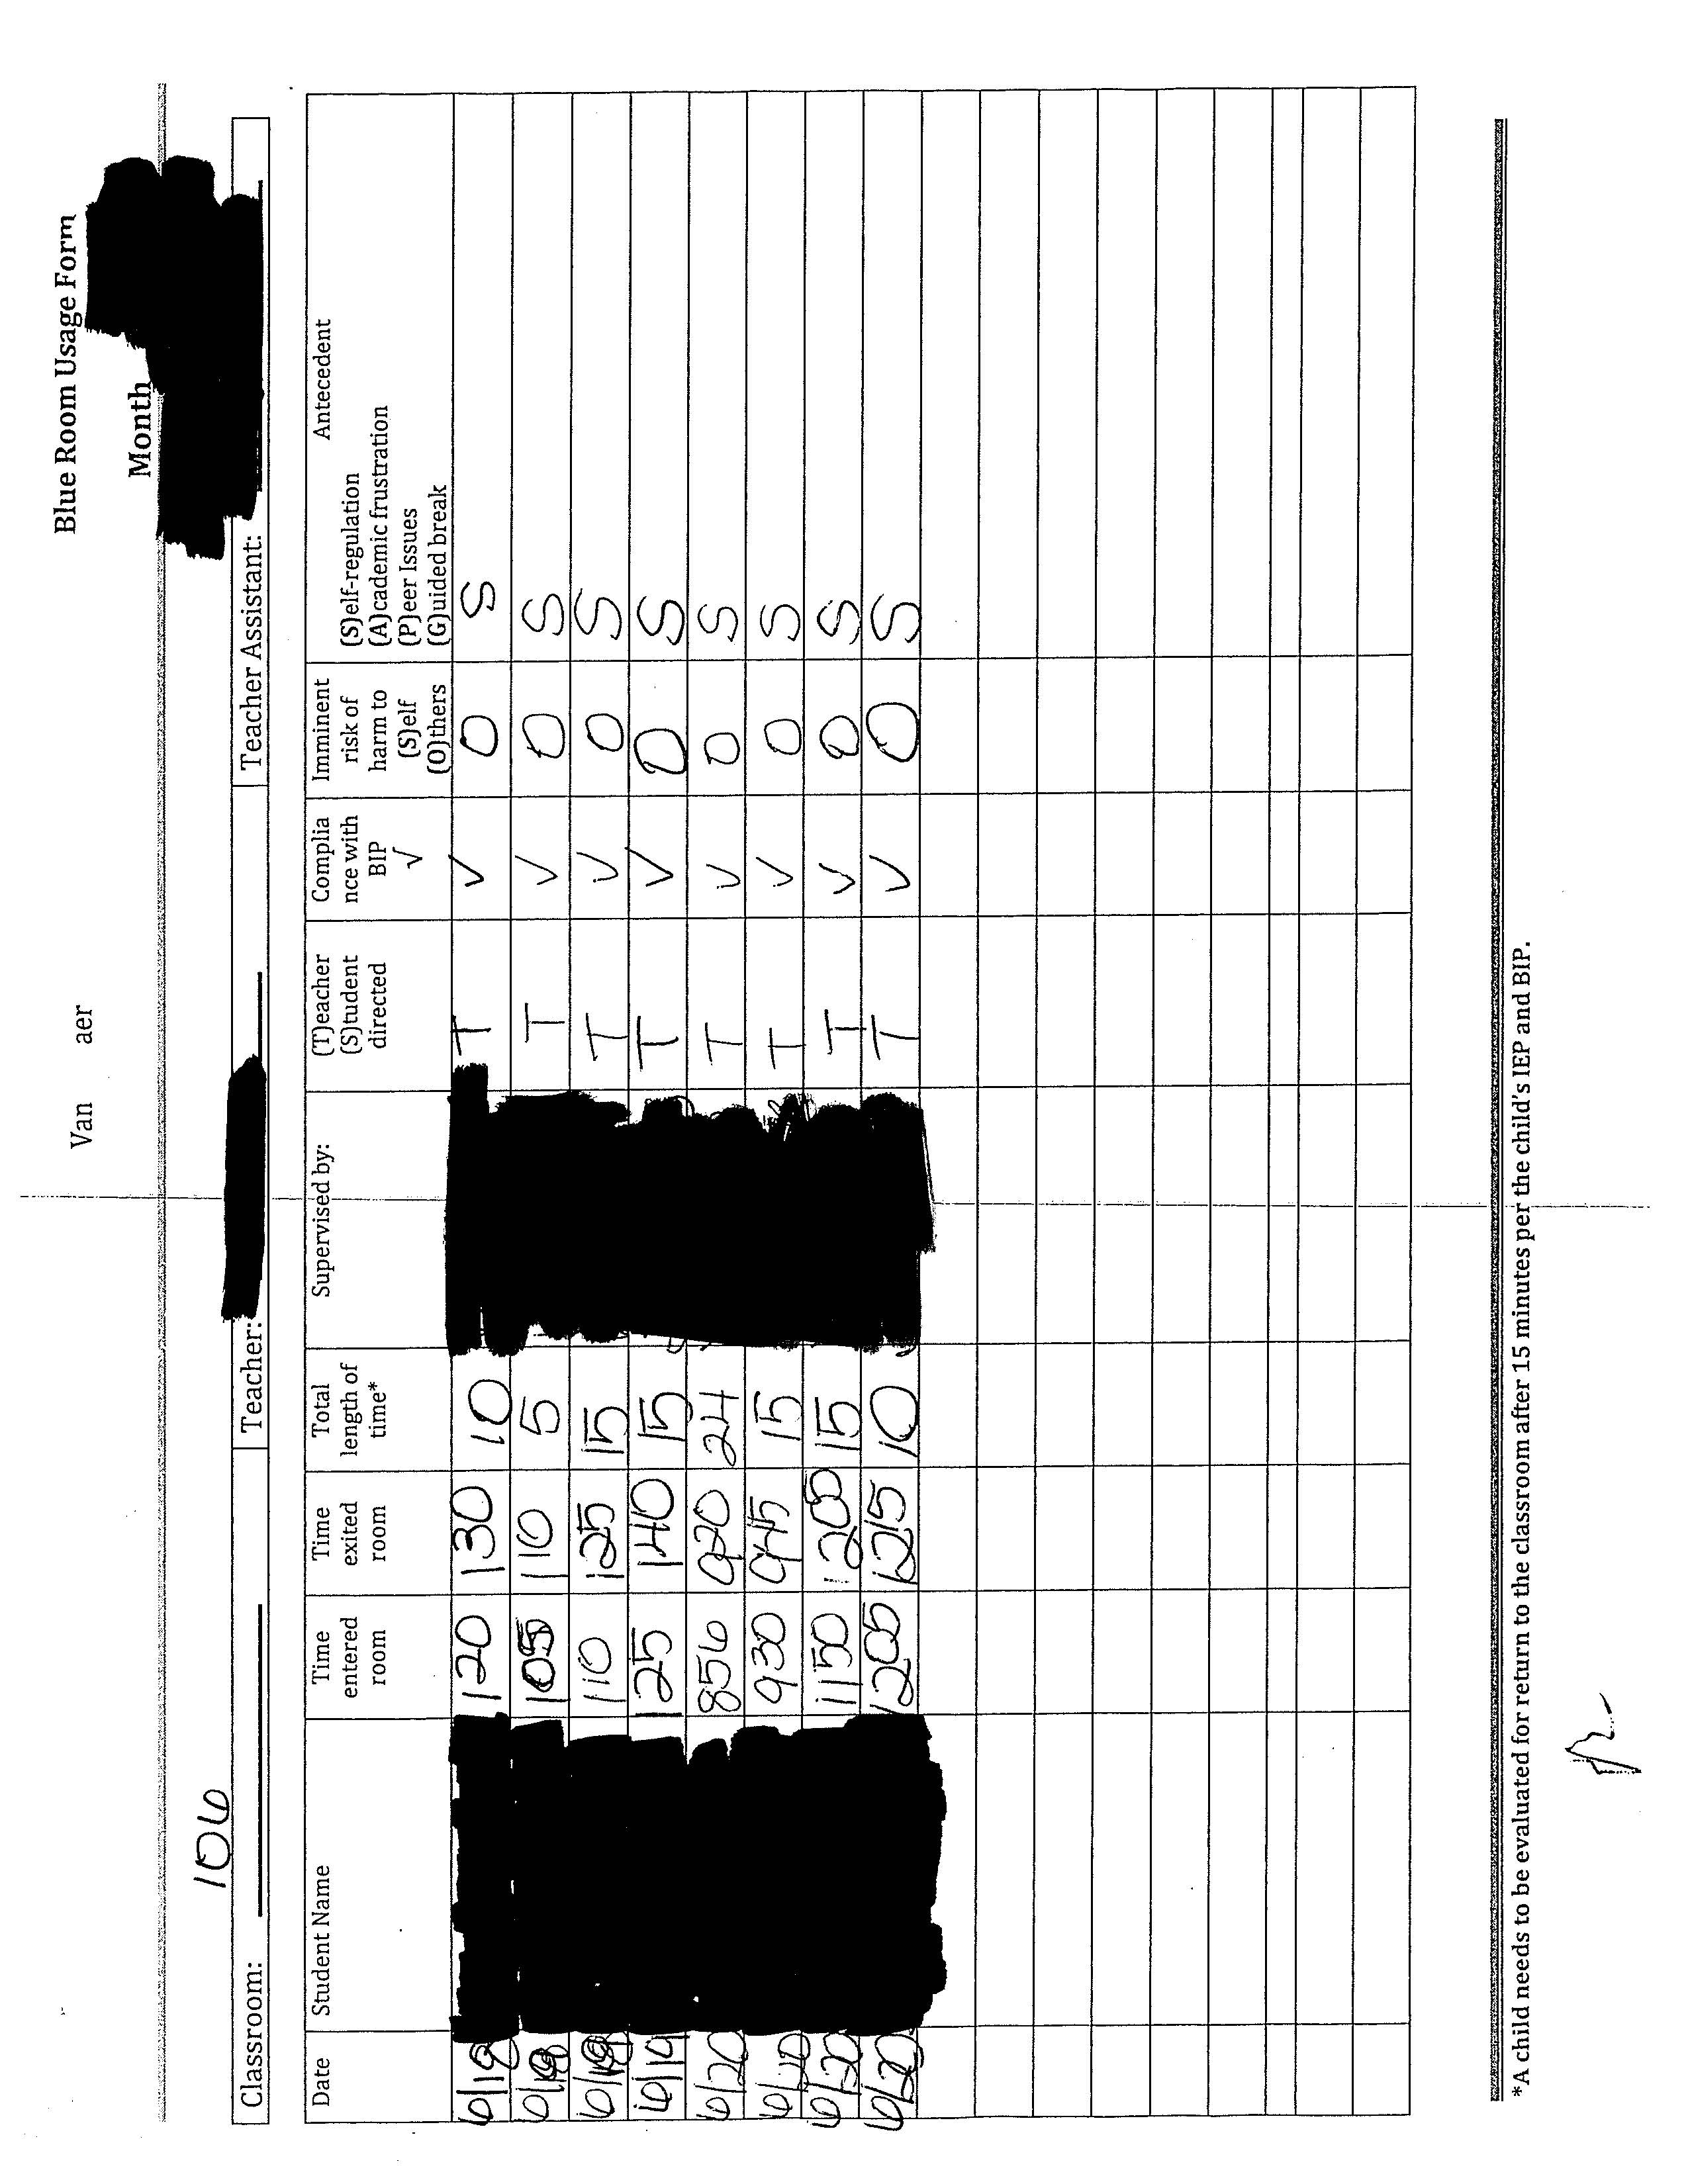 Blue Room Usage Form
Van aer
Month
106
Classroom: Teacher: Teacher Assistant:
Date Student Name Time entered room Time exited room Total length of time* Supervised by: (T)eacher (S)tudent directed Complia nce with BIP √ Imminent risk of harm to (S)elf (O)thers Antecedent (S)elf-regulation (A)cademic frustration (P)eer Issues (G)uided break
6/18 120 130 10 T √ O S
105 110 5 T √ O S
110 125 15 T √ O S
6/19 125 140 15 T √ O S
6/20 856 920 24 T √ O S
6/20 930 945 15 T √ O S
6/20 1150 1205 15 T √ O S
6/20 1205 1215 10 T √ O S
*A child needs to be evaluated for return to the classroom after 15 minutes per the child's IEP and BIP.